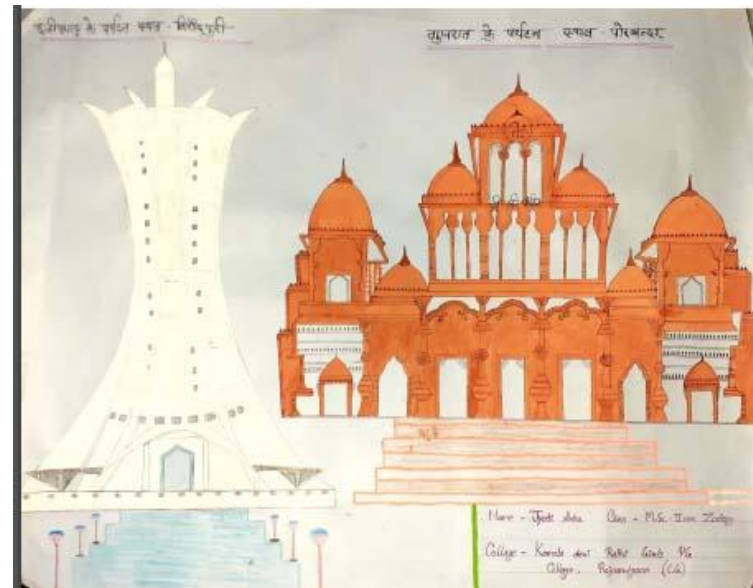 छत्तीसगढ़ के पर्यटन स्थल - गिरौदपुरी
गुजरात के पर्यटन स्थल - पोरबन्दर
Name - Jyoti Class - M.Sc. Zoology
College - Kamla devi Rathi Girls PG
College, Rajnandgaon (C.G)